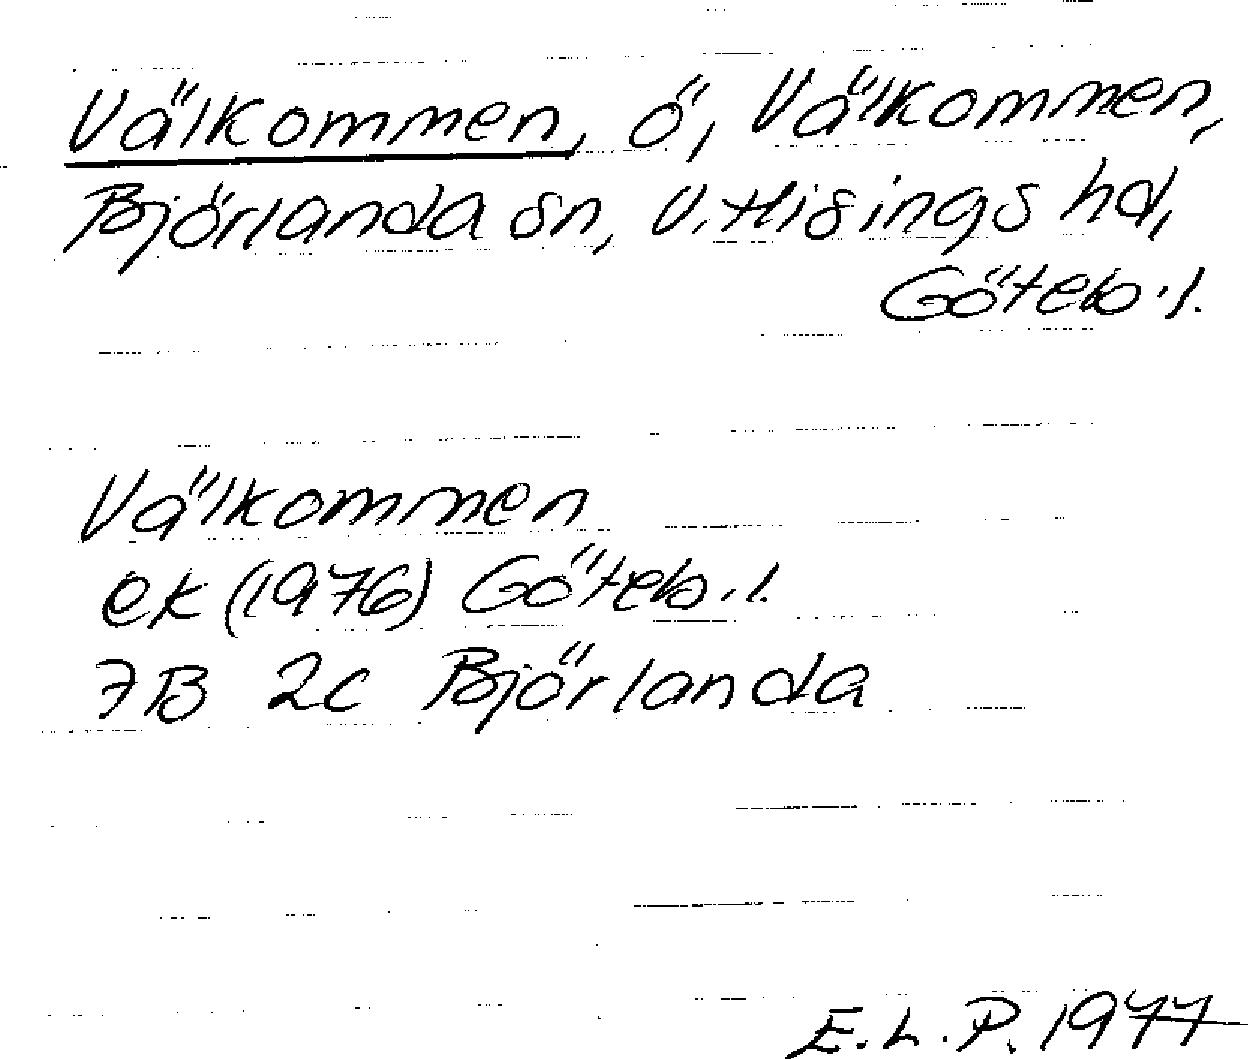 Välkommen, ö, Välkommen,
Björlanda sn, V. Hisings hd,
Göteb. l.
Välkommen
ek (1976) Göteb. l.
7B 2c Björlanda
E. L. P. 1977